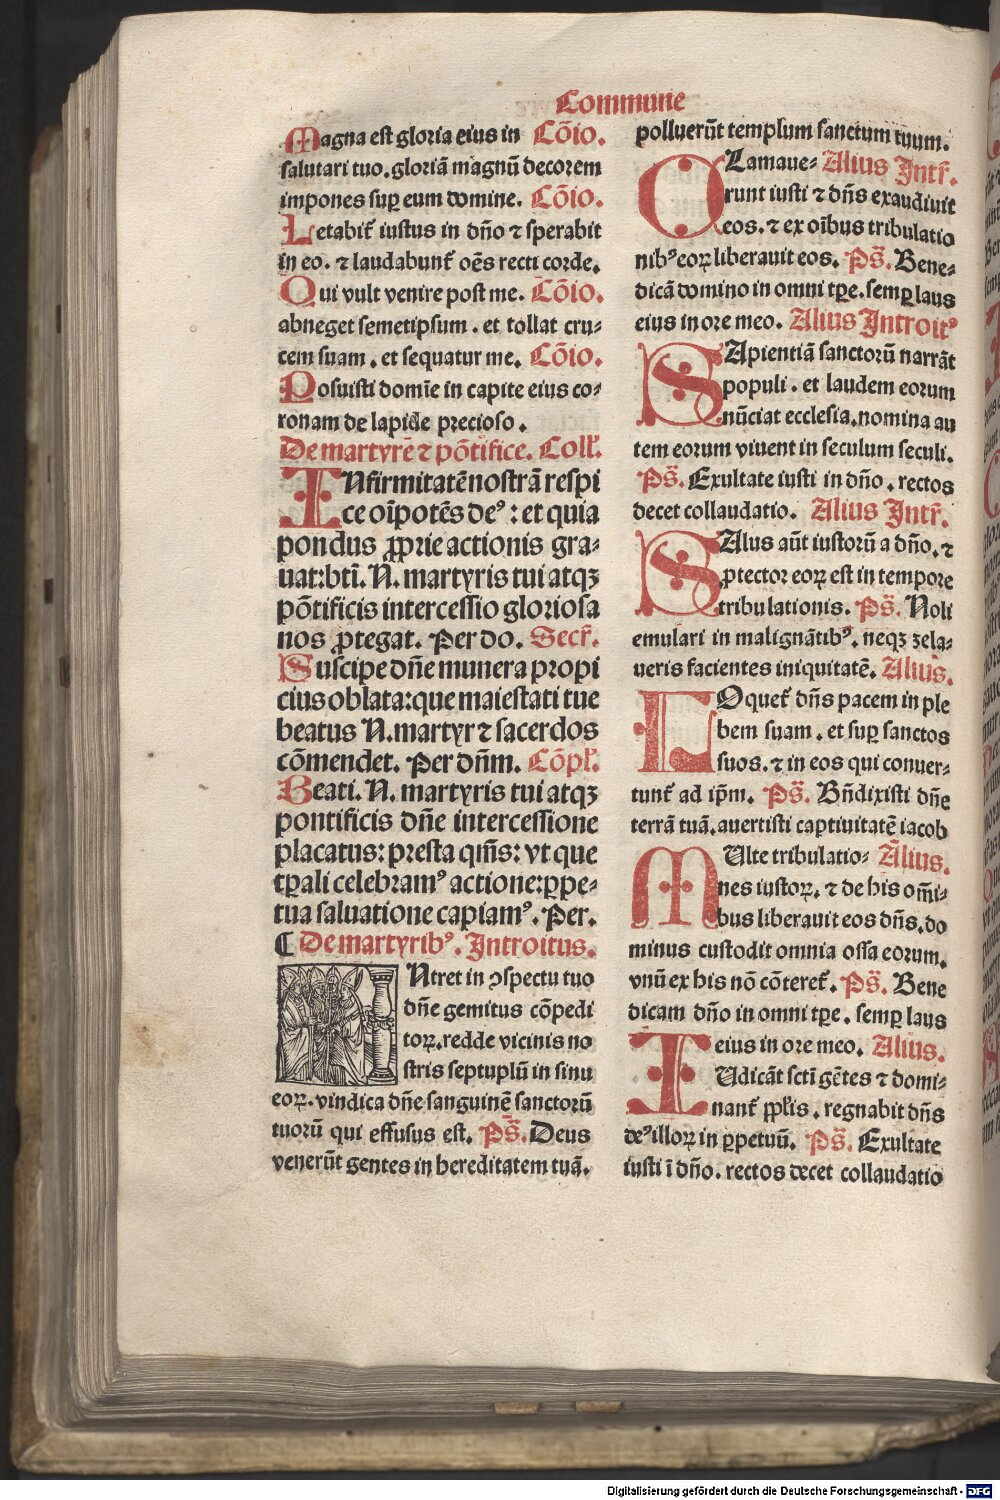 Commune
Magna est gloria eius in Cõio.
salutari tuo. gloriã magnũ decorem
impones suꝑ eum domine. Cõio.
Letabit᷑ iustus in dño ⁊ sperabit
in eo. ⁊ laudabunt᷑ oẽs recti corde.
Qui vult venire post me. Cõio.
abneget semetipsum. et tollat cru⸗
cem suam. et sequatur me. Cõio.
Posuisti domĩe in capite eius co⸗
ronam de lapide precioso.
De martyrẽ ⁊ põtifice. Coll᷑.
INfirmitatẽ nostrã respi
ce oĩpotẽs deꝰ: et quia
pondus ꝓprie actionis gra⸗
uat: bti̅. N. martyris tui atqꝫ
põtificis intercessio gloriosa
nos ꝓtegat. Per do. Secr᷑.
Suscipe dñe munera propi
cius oblata: que maiestati tue
beatus N. martyr ⁊ sacerdos
cõmendet. Per dñm. Cõpl᷑.
Beati. N. martyris tui atqꝫ
pontificis dñe intercessione
placatus: presta qm̃s: vt que
tꝑali celebramꝰ actione: ꝑpe⸗
tua saluatione capiamꝰ. Per.
¶ De martyribꝰ. Introitus.
Ntret in ꝯspectu tuo
dñe gemitus cõpedi
toꝝ. redde vicinis no
stris septuplũ in sinu
eoꝝ. vindica dñe sanguinẽ sanctorũ
tuorũ qui effusus est. Ps̃. Deus
venerũt gentes in hereditatem tuã.
polluerũt templum sanctum tuum.
CLamaue⸗ Alius Intr᷑.
runt iusti ⁊ dñs exaudiuit
eos. ⁊ ex oĩbus tribulatio
nibꝰ eoꝝ liberauit eos. Ps̃. Bene⸗
dicã domino in omni tꝑe. semꝑ laus
eius in ore meo. Alius Introitꝰ
SApientiã sanctorũ narrãt
populi. et laudem eorum
nũciat ecclesia. nomina au
tem eorum viuent in seculum seculi.
Ps̃. Exultate iusti in dño. rectos
decet collaudatio. Alius Intr᷑.
SAlus aũt iustorũ a dño. ⁊
ꝓtector eoꝝ est in tempore
tribulationis. Ps̃. Noli
emulari in malignãtibꝰ. neqꝫ zela⸗
ueris facientes iniquitatẽ. Alius.
LOquet᷑ dñs pacem in ple
bem suam. et suꝑ sanctos
suos. ⁊ in eos qui conuer⸗
tunt᷑ ad ip̃m. Ps̃. Bñdixisti dñe
terrã tuã. auertisti captiuitatẽ iacob
MUlte tribulatio⸗ Alius.
nes iustoꝝ. ⁊ de his om̃i⸗
bus liberauit eos dñs. do
minus custodit omnia ossa eorum.
vnũ ex his nõ cõteret᷑. Ps̃. Bene
dicam dño in omni tꝑe. semꝑ laus
eius in ore meo. Alius.
IUdicãt sctĩ gẽtes ⁊ domi⸗
nant᷑ ppl᷑is. regnabit dñs
deꝰ illoꝝ in ꝑpetuũ. Ps̃. Exultate
iusti ĩ dño. rectos decet collaudatio
Digitalisierung gefördert durch die Deutsche Forschungsgemeinschaft - DFG